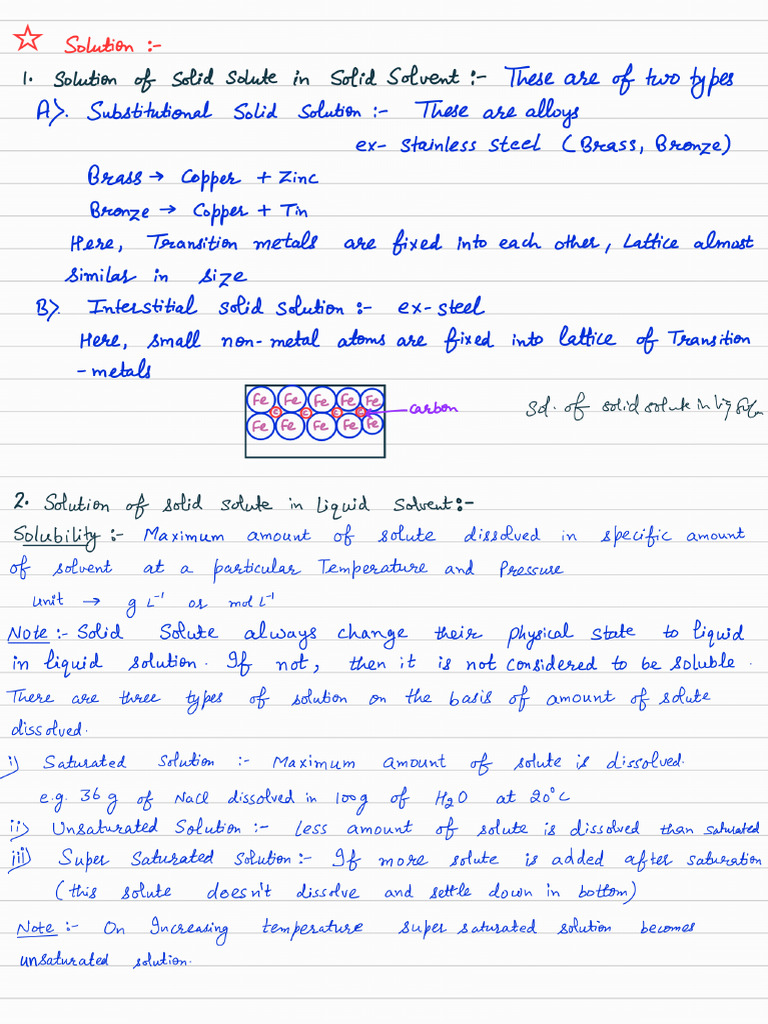 ☆ Solution :-
1. Solution of Solid Solute in Solid Solvent :- These are of two types
A). Substitutional Solid Solution :- These are alloys
ex- Stainless steel (Brass, Bronze)
Brass → Copper + Zinc
Bronze → Copper + Tin
Here, Transition metals are fixed into each other, Lattice almost
similar in size
B). Interstitial solid solution :- ex-steel
Here, small non-metal atoms are fixed into lattice of Transition
-metals
Fe Fe Fe Fe Fe
C C C C carbon
Fe Fe Fe Fe Fe
Sol. of solid solute in liq
2. Solution of solid solute in Liquid Solvent:-
Solubility :- Maximum amount of solute dissolved in specific amount
of solvent at a particular Temperature and Pressure
Unit → g L⁻¹ or mol L⁻¹
Note :- Solid Solute always change their physical state to liquid
in liquid solution. If not, then it is not considered to be soluble.
There are three types of solution on the basis of amount of solute
dissolved.
i) Saturated Solution :- Maximum amount of solute is dissolved.
e.g. 36 g of NaCl dissolved in 100g of H₂O at 20°C
ii) Unsaturated Solution :- Less amount of solute is dissolved than saturated
iii) Super Saturated Solution:- If more solute is added after saturation
(this solute doesn't dissolve and settle down in bottom)
Note :- On Increasing temperature super saturated solution becomes
unsaturated solution.